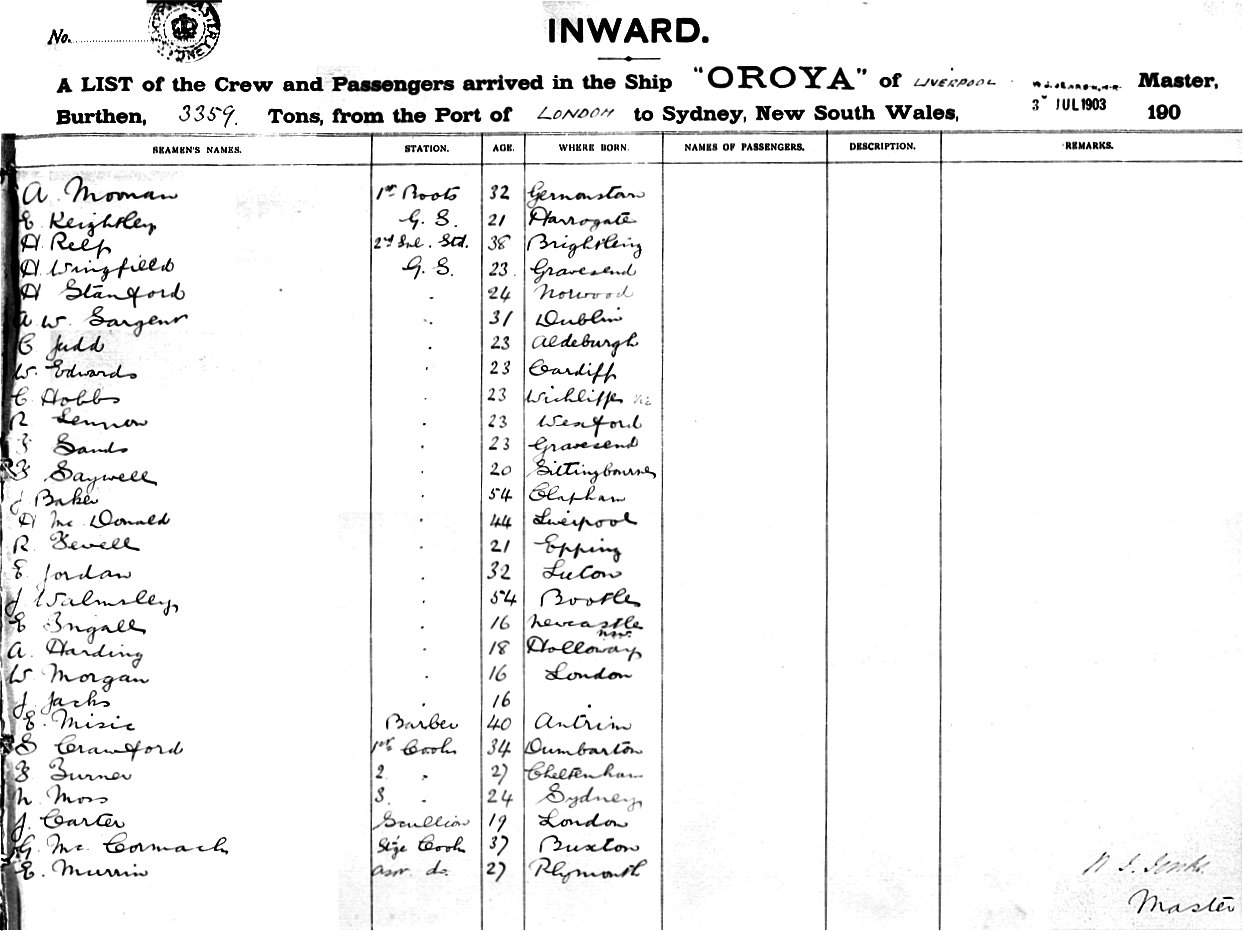 No.
INWARD.
A LIST of the Crew and Passengers arrived in the Ship "OROYA" of LIVERPOOL Master,
Burthen, 3359. Tons, from the Port of LONDON to Sydney, New South Wales, 3 JUL 1903 190
SEAMEN'S NAMES. STATION. AGE. WHERE BORN. NAMES OF PASSENGERS. DESCRIPTION. REMARKS.
A. Moonan 1st Boots 32
E Keightley G. S. 21 Harrogate
H Relf 2nd Sal. Std. 38 Brightling
H Wingfield G. S. 23 Gravesend
H Stanford " 24 Norwood
A W. Sargent " 31 Dublin
C Judd " 23 Aldeburgh
W. Edwards " 23 Cardiff
C Hobbs " 23
R Lennon " 23 Wexford
F Sands " 23 Gravesend
F Saywell " 20 Sittingbourne
J Baker " 54 Clapham
H Mc Donald " 44 Liverpool
R. Fewell " 21 Epping
E Jordan " 32 Luton
J Walmsley " 54 Bootle
E Ingall " 16 Newcastle NSW.
A. Harding " 18 Holloway
W Morgan " 16 London
J. Jacks " 16 "
E. Misic Barber 40 Antrim
S Crawford 1st Cook 34 Dumbarton
F Turner 2 " 27 Cheltenham
N. Moss 3. " 24 Sydney
J. Carter Scullion 19 London
G. Mc Cormack Stge Cook 37 Buxton
E. Murrin Assr do. 27 Plymouth
Master